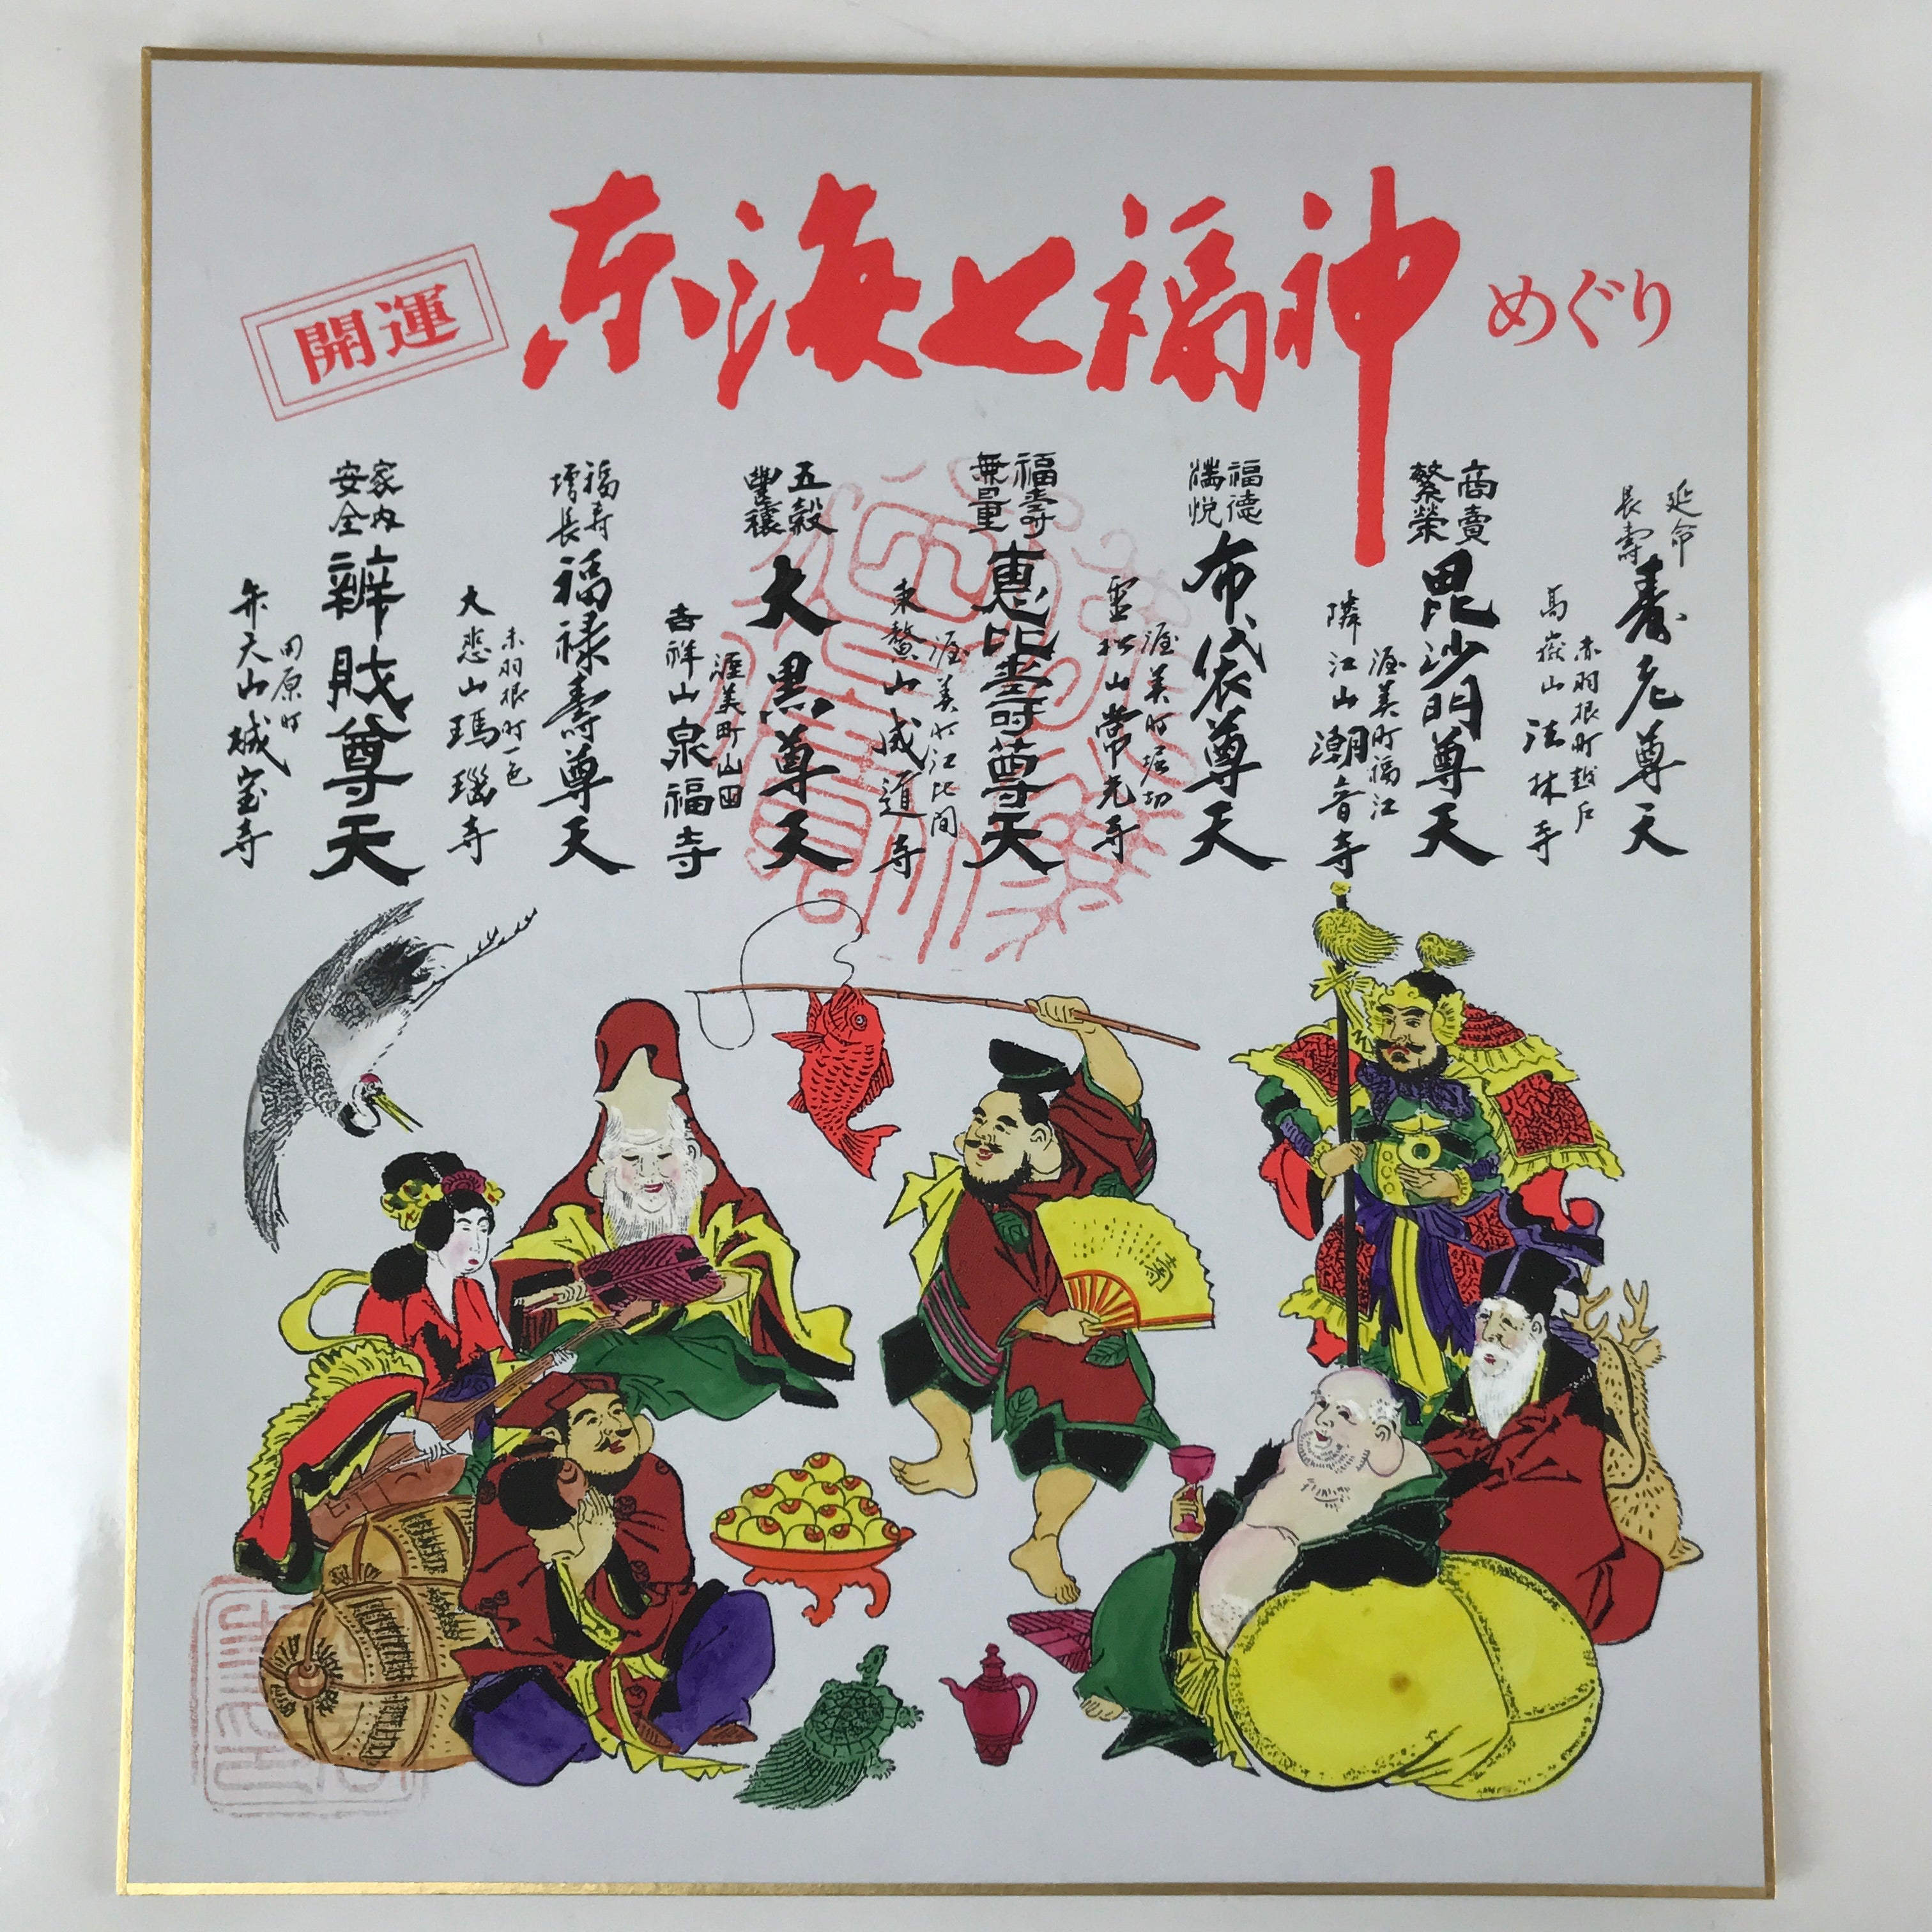 開運
東海七福神
めぐり
延命
長壽
寿老尊天
赤羽根町越戸
高嶽山 法林寺
商賣
繁榮
毘沙門尊天
渥美町福江
隣江山 潮音寺
福德
布袋尊天
渥美町堀切
霊松山 常光寺
福壽
無量
惠比壽尊天
渥美町江比間
東鰲山 成道寺
五穀
豊穰
大黒尊天
渥美町山田
吉祥山 泉福寺
福寿
増長
福禄壽尊天
赤羽根町一色
大悲山 瑪瑙寺
家内
安全
辨財尊天
田原町
弁天山 城宝寺
寿